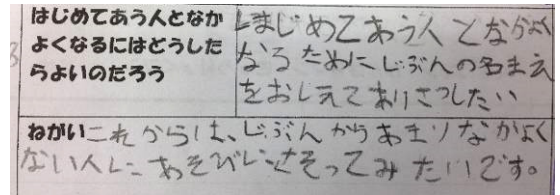 はじめてあう人となか
よくなるにはどうした
らよいのだろう
はじめてあう人となかよく
なるためにじぶんの名まえ
をおしえてあいさつしたい
ねがい これからは、じぶんからあまりなかよく
ない人にあそびにさそってみたいです。